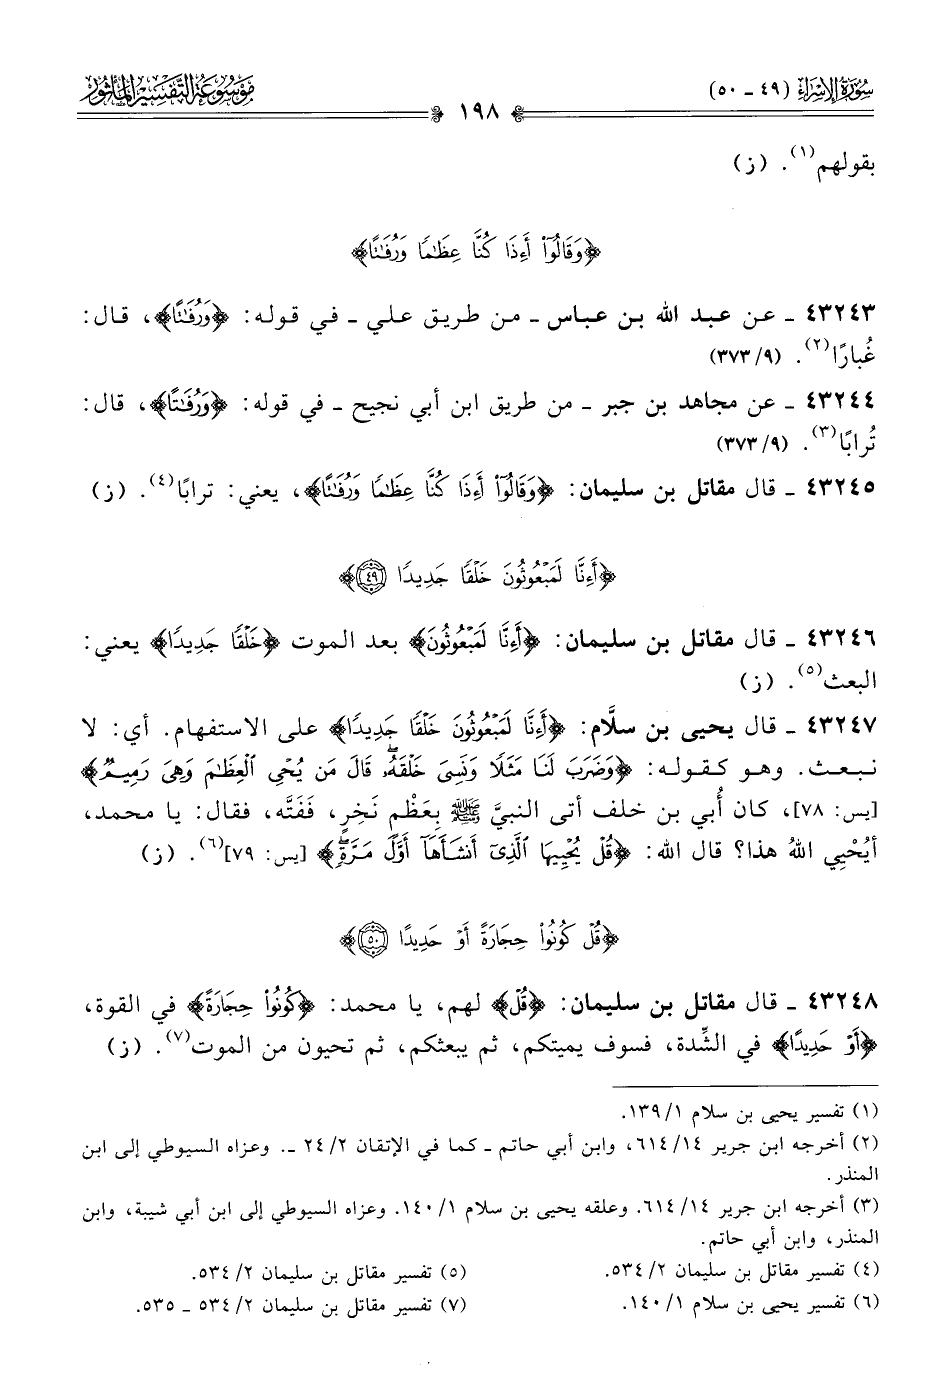 سُورَةُ الإِسْرَاءِ (٤٩ ـ ٥٠)
١٩٨
مَوْسُوعَةُ التَّفْسِيرِ المَأْثُور
بقولهم(١). (ز)
﴿وَقَالُوٓاْ أَءِذَا كُنَّا عِظَٰمٗا وَرُفَٰتًا﴾
٤٣٢٤٣ ـ عن عبد الله بن عباس ـ من طريق علي ـ في قوله: ﴿وَرُفَٰتًا﴾، قال:
غُبارًا(٢). (٩/ ٣٧٣)
٤٣٢٤٤ ـ عن مجاهد بن جبر ـ من طريق ابن أبي نجيح ـ في قوله: ﴿وَرُفَٰتًا﴾، قال:
تُرابًا(٣). (٩/ ٣٧٣)
٤٣٢٤٥ ـ قال مقاتل بن سليمان: ﴿وَقَالُوٓاْ أَءِذَا كُنَّا عِظَٰمٗا وَرُفَٰتًا﴾، يعني: ترابًا(٤). (ز)
﴿أَءِنَّا لَمَبۡعُوثُونَ خَلۡقٗا جَدِيدٗا ٤٩﴾
٤٣٢٤٦ ـ قال مقاتل بن سليمان: ﴿أَءِنَّا لَمَبۡعُوثُونَ﴾ بعد الموت ﴿خَلۡقٗا جَدِيدٗا﴾ يعني:
البعث(٥). (ز)
٤٣٢٤٧ ـ قال يحيى بن سلَّام: ﴿أَءِنَّا لَمَبۡعُوثُونَ خَلۡقٗا جَدِيدٗا﴾ على الاستفهام. أي: لا
نبعث. وهو كقوله: ﴿وَضَرَبَ لَنَا مَثَلٗا وَنَسِيَ خَلۡقَهُۥۖ قَالَ مَن يُحۡيِ ٱلۡعِظَٰمَ وَهِيَ رَمِيمٞ﴾
[يس: ٧٨]، كان أُبي بن خلف أتى النبيَّ ﷺ بِعَظْمٍ نَخِرٍ، فَفَتَّه، فقال: يا محمد،
أيُحْيِي اللهُ هذا؟ قال الله: ﴿قُلۡ يُحۡيِيهَا ٱلَّذِيٓ أَنشَأَهَآ أَوَّلَ مَرَّةٖۖ﴾ [يس: ٧٩](٦). (ز)
﴿قُلۡ كُونُواْ حِجَارَةً أَوۡ حَدِيدًا ٥٠﴾
٤٣٢٤٨ ـ قال مقاتل بن سليمان: ﴿قُلۡ﴾ لهم، يا محمد: ﴿كُونُواْ حِجَارَةً﴾ في القوة،
﴿أَوۡ حَدِيدًا﴾ في الشِّدة، فسوف يميتكم، ثم يبعثكم، ثم تحيون من الموت(٧). (ز)
(١) تفسير يحيى بن سلام ١/ ١٣٩.
(٢) أخرجه ابن جرير ١٤/ ٦١٤، وابن أبي حاتم ـ كما في الإتقان ٢/ ٢٤ ـ. وعزاه السيوطي إلى ابن
المنذر.
(٣) أخرجه ابن جرير ١٤/ ٦١٤. وعلقه يحيى بن سلام ١/ ١٤٠. وعزاه السيوطي إلى ابن أبي شيبة، وابن
المنذر، وابن أبي حاتم.
(٤) تفسير مقاتل بن سليمان ٢/ ٥٣٤.
(٥) تفسير مقاتل بن سليمان ٢/ ٥٣٤.
(٦) تفسير يحيى بن سلام ١/ ١٤٠.
(٧) تفسير مقاتل بن سليمان ٢/ ٥٣٤ ـ ٥٣٥.